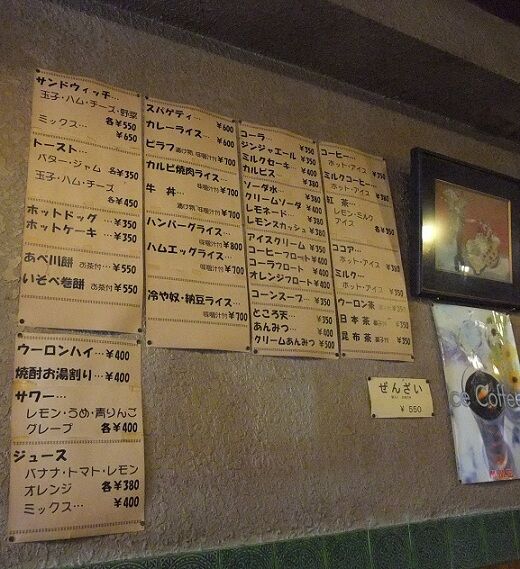 サンドウィッチ…
玉子・ハム・チーズ・野菜
各￥550
ミックス… ￥650
トースト…
バター・ジャム 各￥350
玉子・ハム・チーズ
各￥450
ホットドッグ ￥350
ホットケーキ… ￥350
あべ川餅 お茶付… ￥550
いそべ巻餅 お茶付… ￥550
スパゲティ… ￥600
カレーライス… ￥600
ピラフ 漬け物, 味噌汁付 ￥700
カルビ焼肉ライス…
味噌汁付 ￥700
牛丼…
漬け物, 味噌汁付 ￥700
ハンバーグライス…
味噌汁付 ￥800
ハムエッグライス…
味噌汁付 ￥700
冷や奴・納豆ライス…
味噌汁付 ￥700
コーラ… ￥350
ジンジャエール… ￥350
ミルクセーキ… ￥400
カルピス… ￥380
ソーダ水… ￥380
クリームソーダ ￥400
レモネード… ￥380
レモンスカッシュ ￥380
アイスクリーム ￥350
コーヒーフロート ￥400
コーラフロート ￥400
オレンジフロート ￥400
コーンスープ… ￥350
ところ天… ￥350
あんみつ… ￥400
クリームあんみつ ￥500
コーヒー… ￥350
ホット・アイス
ミルクコーヒー… ￥350
ホット・アイス
紅茶…
レモン・ミルク
アイス 各￥350
ココア… ￥350
ホット・アイス
ミルク… ￥350
ホット・アイス
ウーロン茶 ￥350
日本茶 菓子付 ￥350
昆布茶 菓子付 ￥350
ウーロンハイ… ￥400
焼酎お湯割り… ￥400
サワー…
レモン・うめ・青りんご
グレープ 各￥400
ジュース…
バナナ・トマト・レモン
オレンジ 各￥380
ミックス… ￥400
ぜんざい
￥550
ce Coffee